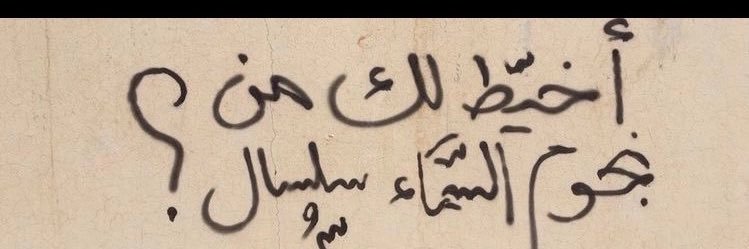 أخيّط لك من
نجوم السَّمَاء سِلسال ؟